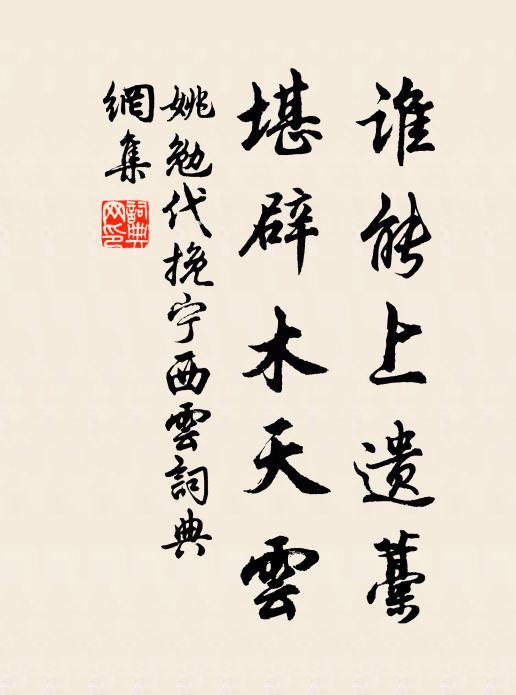 誰能上遗藁
堪辟木天雲
姚勉代挽宁西雲詞典
網集
詞典網印